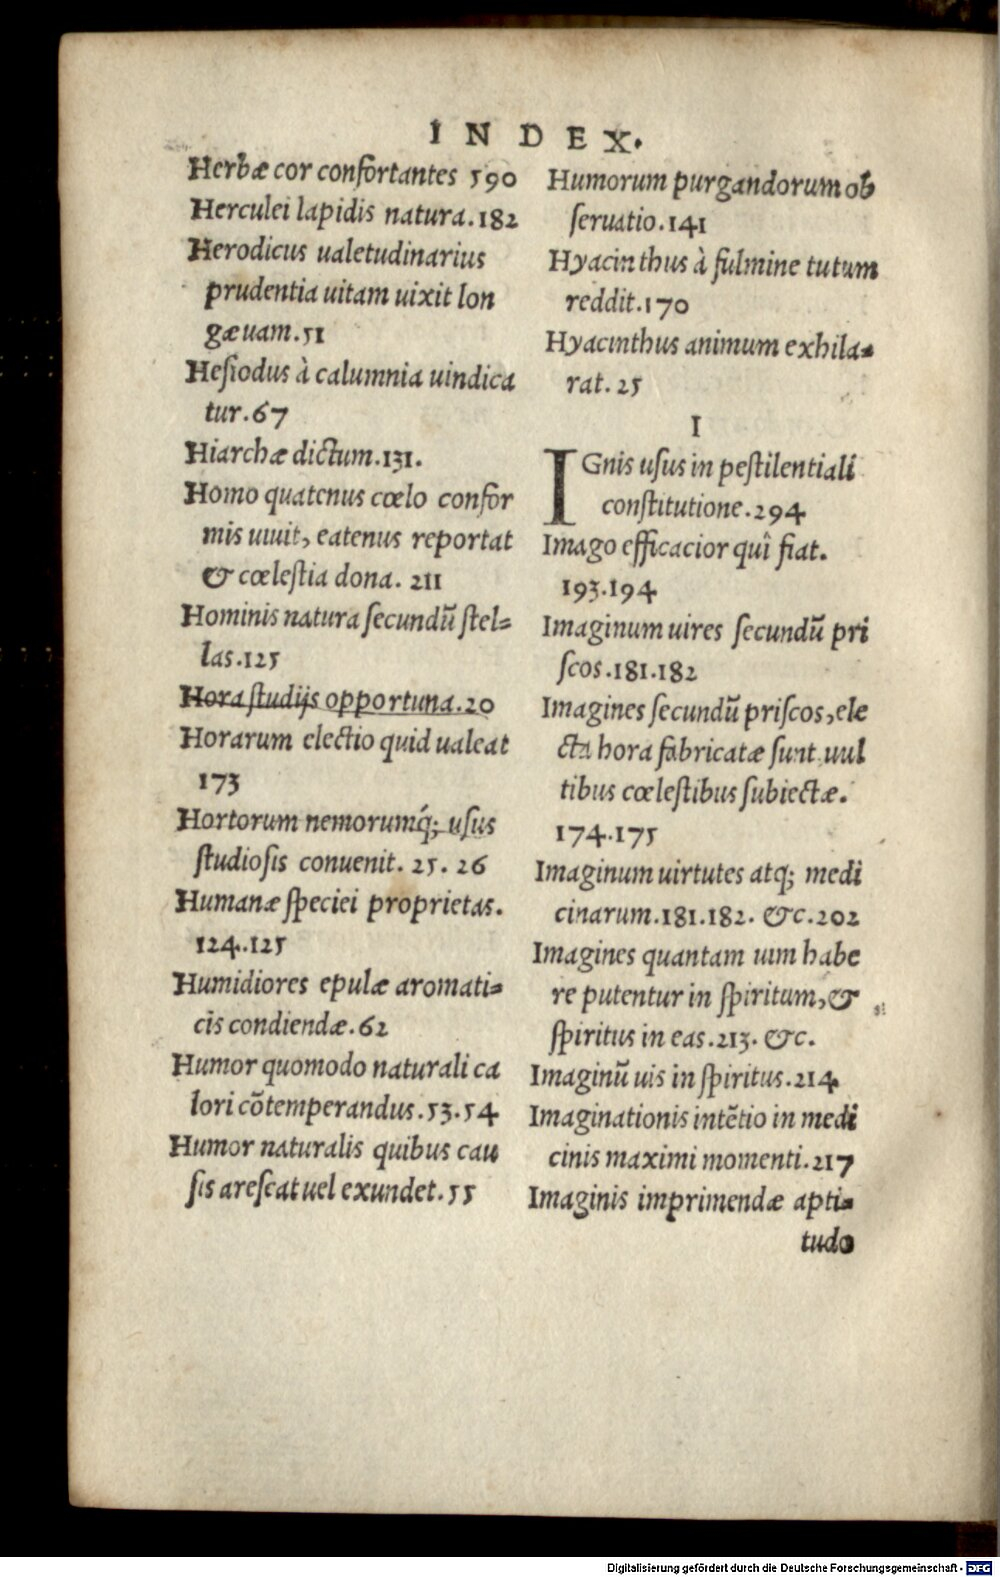 INDEX.
Herbæ cor confortantes 590
Herculei lapidis natura.182
Herodicus ualetudinarius
prudentia uitam uixit lon
gæuam.51
Hesiodus à calumnia uindica
tur.67
Hiarchæ dictum.131.
Homo quatenus cœlo confor
mis uiuit, eatenus reportat
& cœlestia dona. 211
Hominis natura secundũ stel=
las.125
Hora studijs opportuna.20
Horarum electio quid ualeat
173
Hortorum nemorumq́; usus
studiosis conuenit. 25. 26
Humanæ speciei proprietas.
124.125
Humidiores epulæ aromati=
cis condiendæ.62
Humor quomodo naturali ca
lori cõtemperandus.53.54
Humor naturalis quibus cau
sis arescat uel exundet.55
Humorum purgandorum ob
seruatio.141
Hyacinthus à fulmine tutum
reddit.170
Hyacinthus animum exhila=
rat. 25
I
IGnis usus in pestilentiali
constitutione.294
Imago efficacior quî fiat.
193.194
Imaginum uires secundũ pri
scos.181.182
Imagines secundũ priscos, ele
cta hora fabricatæ sunt uul
tibus cœlestibus subiectæ.
174.175
Imaginum uirtutes atq; medi
cinarum.181.182. &c.202
Imagines quantam uim habe
re putentur in spiritum, &
spiritus in eas.213. &c.
Imaginũ uis in spiritus.214
Imaginationis intẽtio in medi
cinis maximi momenti.217
Imaginis imprimendæ apti=
tudo
Digitalisierung gefördert durch die Deutsche Forschungsgemeinschaft - DFG